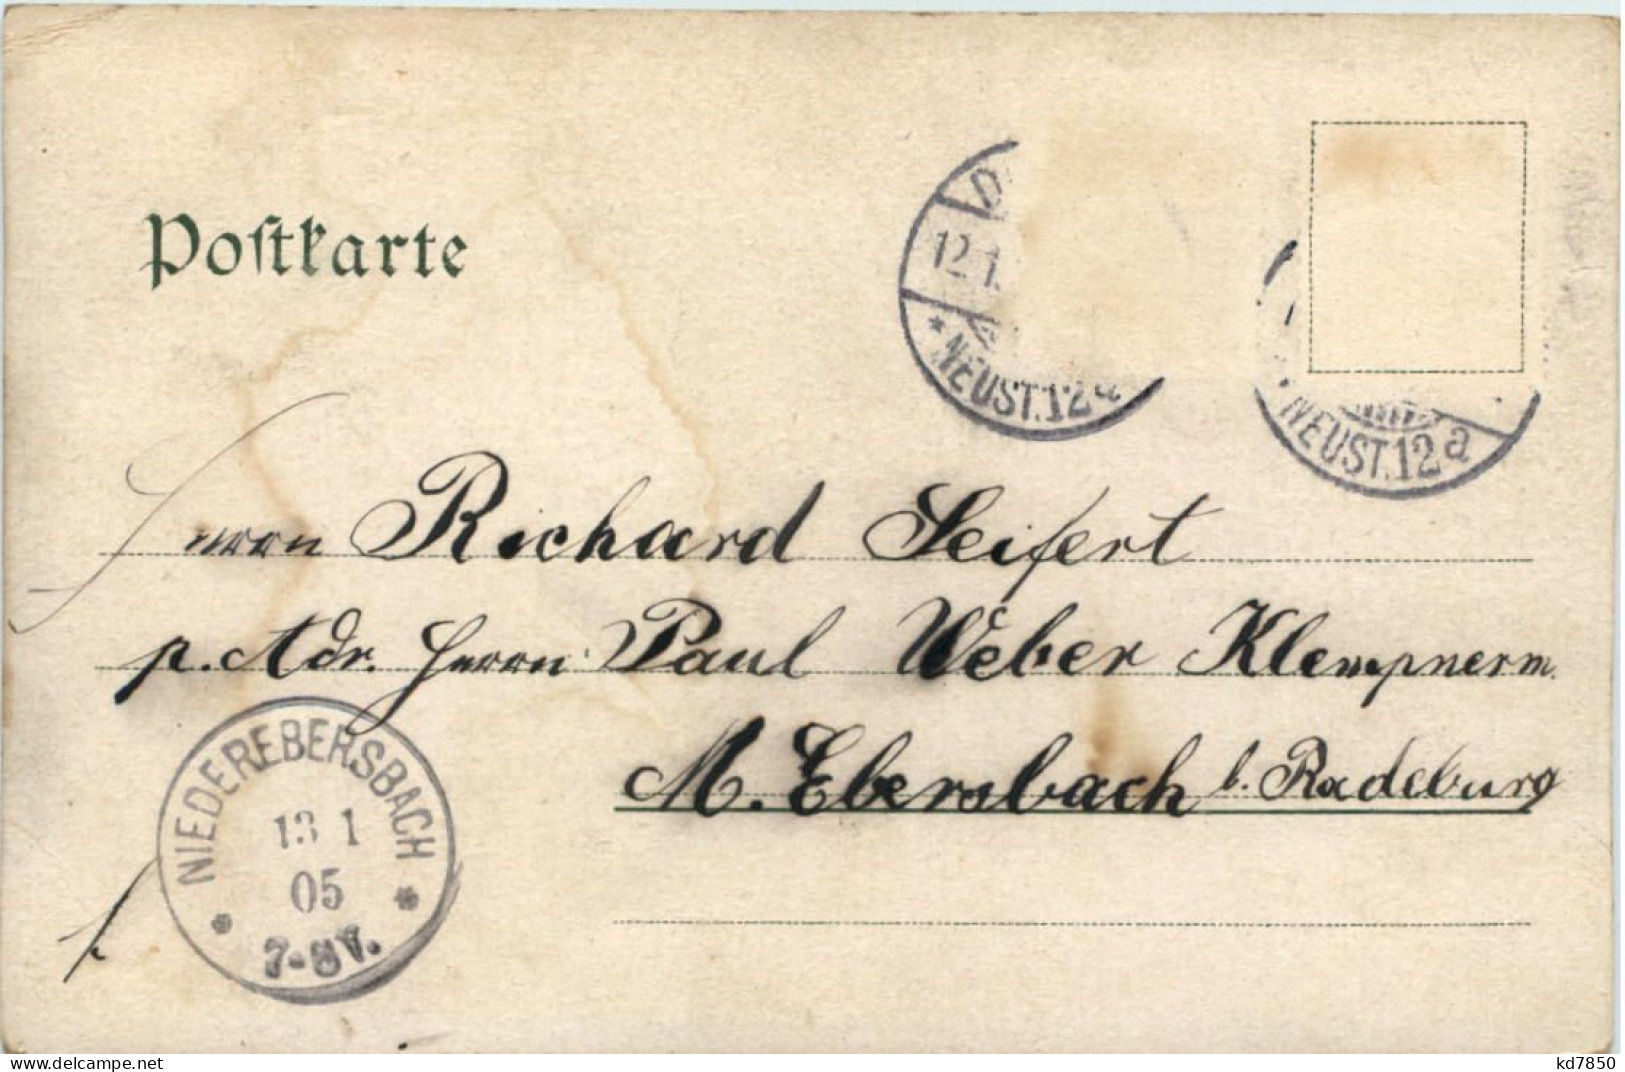 Postkarte
12.1.
* NEUST. 12a
NEUST. 12a
Herrn Richard Seifert
p. Adr. Herrn Paul Weber Klempnerm.
M. Ebersbach b. Radeburg
NIEDEREBERSBACH
13 1
05
7-8V.
www.delcampe.net
kd7850